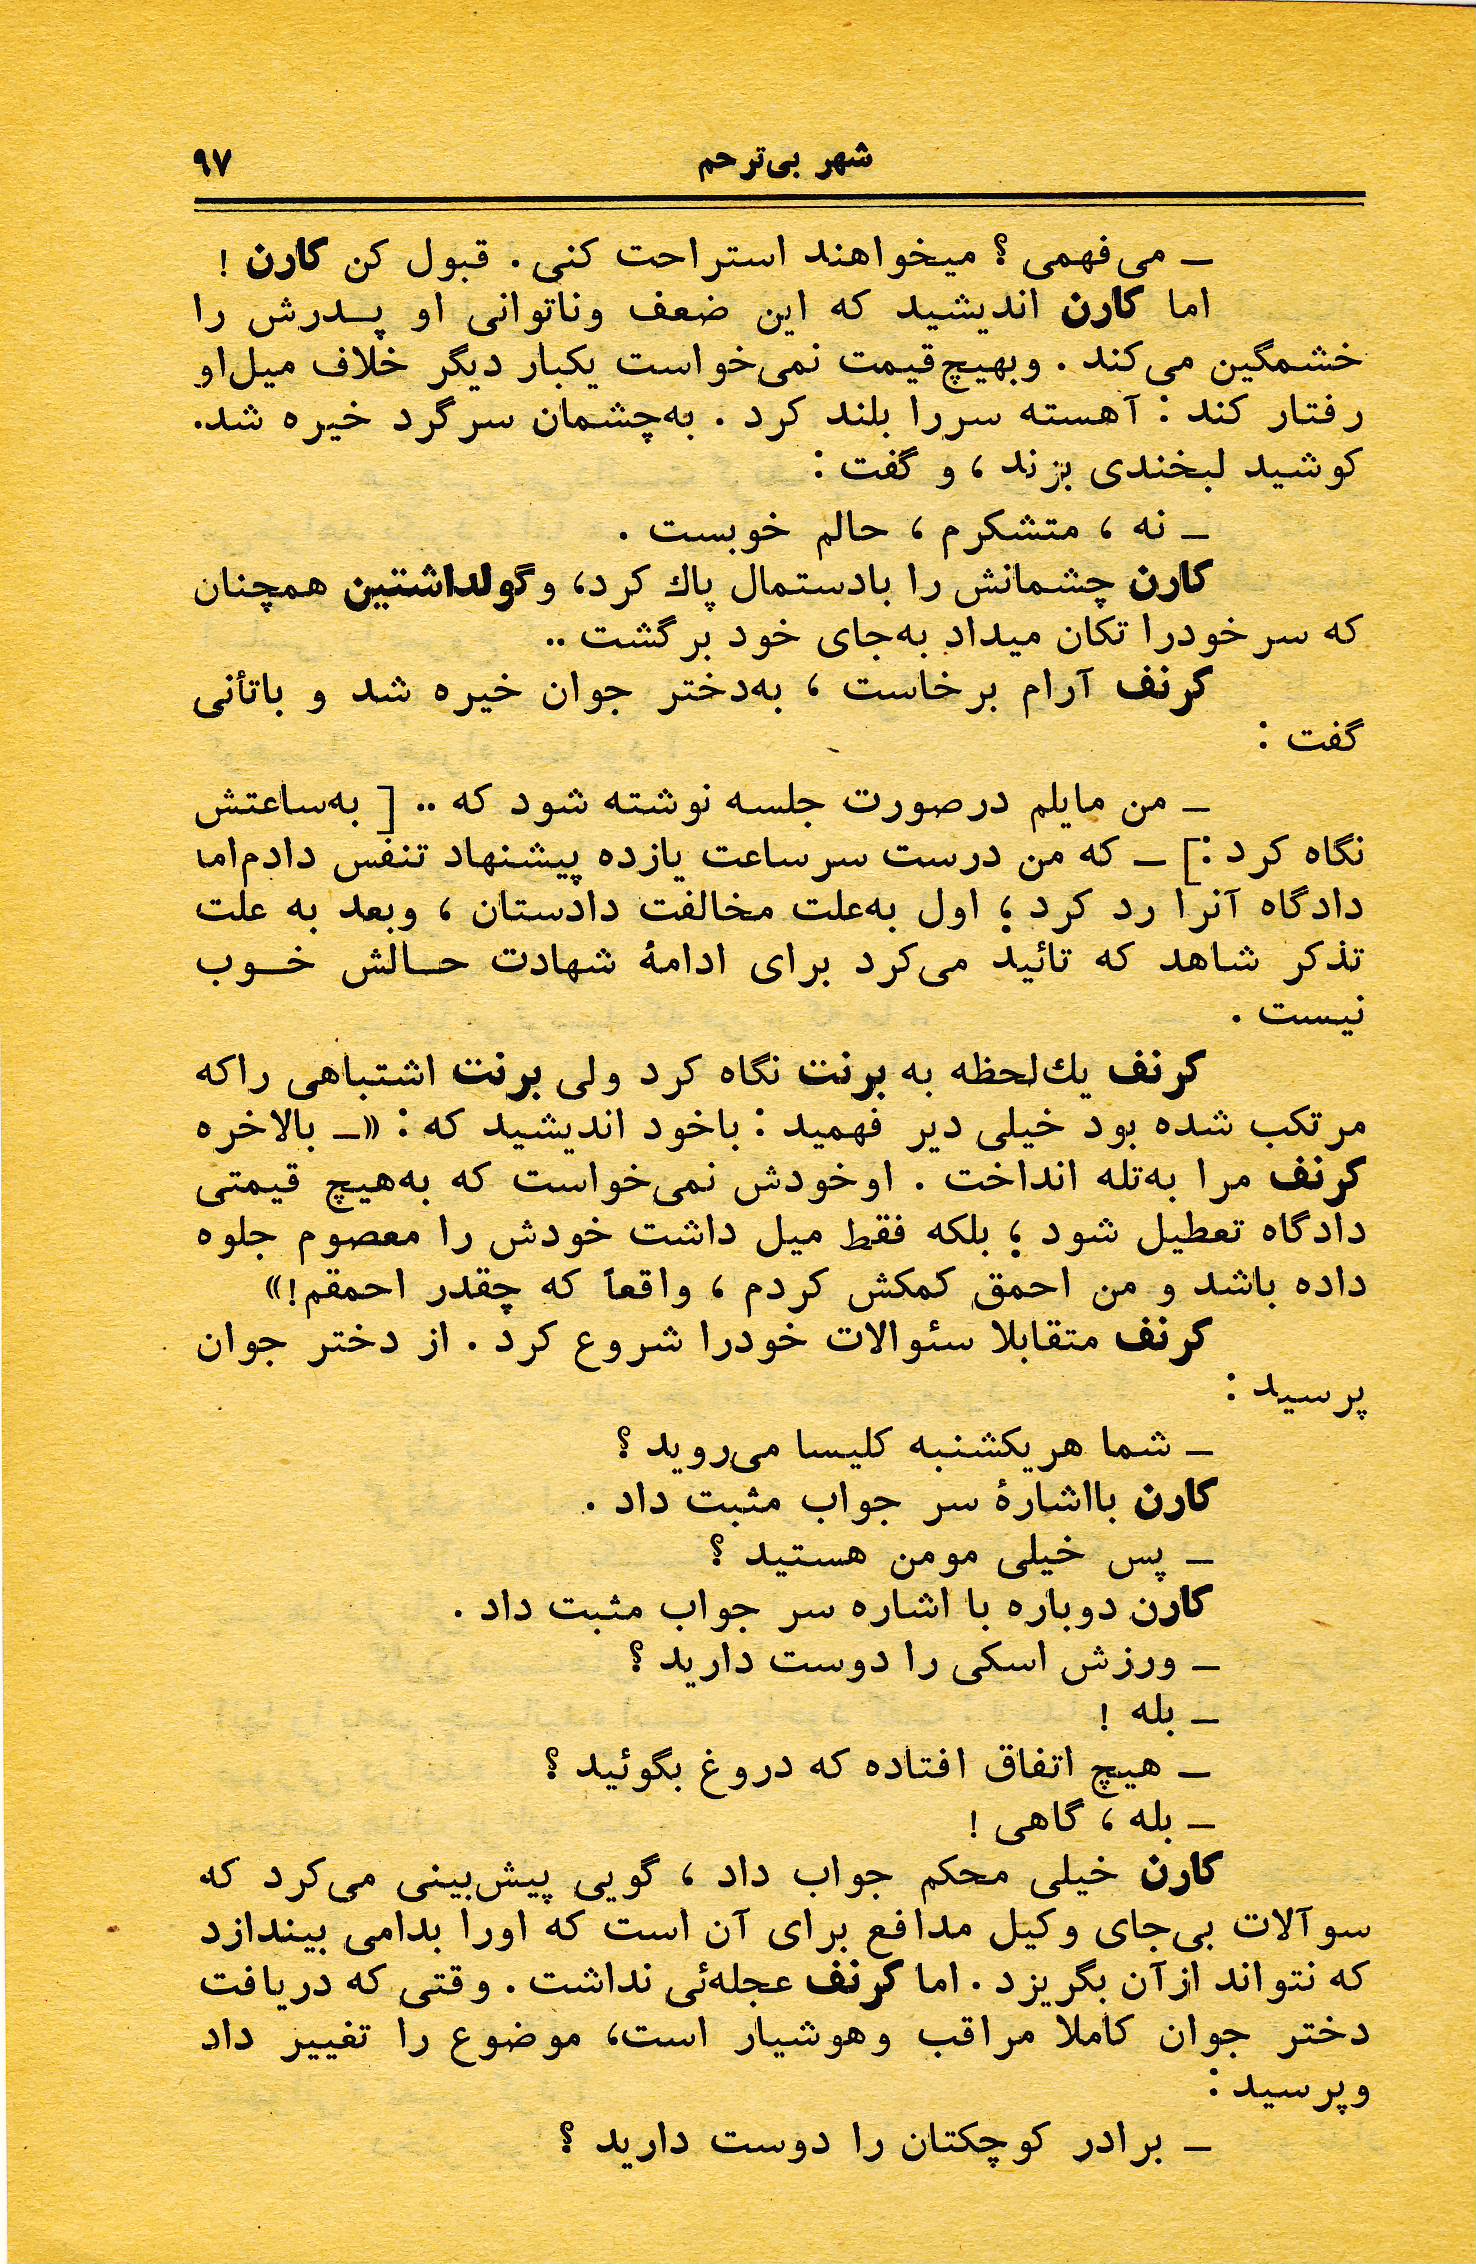 شهر بی‌ترحم ۹۷
ـ می‌فهمی ؟ میخواهند استراحت کنی . قبول کن کارن !
اما کارن اندیشید که این ضعف وناتوانی او پـدرش را
خشمگین می‌کند . وبهیچ‌قیمت نمی‌خواست یکبار دیگر خلاف میل‌او
رفتار کند : آهسته سررا بلند کرد . به‌چشمان سرگرد خیره شد.
کوشید لبخندی بزند ، و گفت :
ـ نه ، متشکرم ، حالم خوبست .
کارن چشمانش را بادستمال پاك کرد، وگولداشتین همچنان
که سرخودرا تکان میداد به‌جای خود برگشت ..
کرنف آرام برخاست ، به‌دختر جوان خیره شد و باتأنی
گفت :
ـ من مایلم درصورت جلسه نوشته شود که .. [ به‌ساعتش
نگاه کرد :] ـ که من درست سرساعت یازده پیشنهاد تنفس دادم‌اما
دادگاه آنرا رد کرد ؛ اول به‌علت مخالفت دادستان ، وبعد به علت
تذکر شاهد که تائید می‌کرد برای ادامهٔ شهادت حـالش خـوب
نیست .
کرنف یك‌لحظه به برنت نگاه کرد ولی برنت اشتباهی راکه
مرتکب شده بود خیلی دیر فهمید : باخود اندیشید که : «ـ بالاخره
کرنف مرا به‌تله انداخت . اوخودش نمی‌خواست که به‌هیچ قیمتی
دادگاه تعطیل شود ؛ بلکه فقط میل داشت خودش را معصوم جلوه
داده باشد و من احمق کمکش کردم ، واقعاً که چقدر احمقم!»
کرنف متقابلا سئوالات خودرا شروع کرد . از دختر جوان
پرسید :
ـ شما هریکشنبه کلیسا می‌روید ؟
کارن بااشارهٔ سر جواب مثبت داد .
ـ پس خیلی مومن هستید ؟
کارن دوباره با اشاره سر جواب مثبت داد .
ـ ورزش اسکی را دوست دارید ؟
ـ بله !
ـ هیچ اتفاق افتاده که دروغ بگوئید ؟
ـ بله ، گاهی !
کارن خیلی محکم جواب داد ، گویی پیش‌بینی می‌کرد که
سوآلات بی‌جای وکیل مدافع برای آن است که اورا بدامی بیندازد
که نتواند ازآن بگریزد . اما کرنف عجله‌ئی نداشت . وقتی که دریافت
دختر جوان کاملا مراقب وهوشیار است، موضوع را تغییر داد
وپرسید :
ـ برادر کوچکتان را دوست دارید ؟